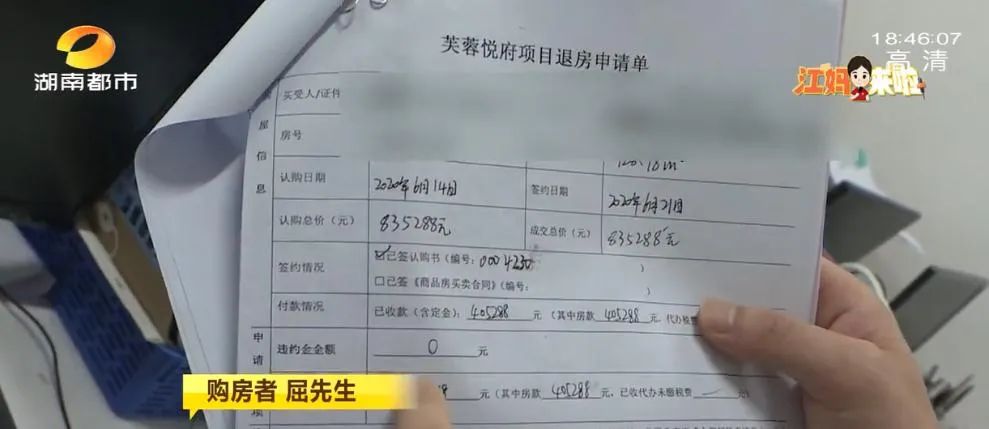 湖南都市
18:46:07
高清
江妈来啦
芙蓉悦府项目退房申请单
买受人/证件
房号
屋信息
认购日期 2020年6月14日 签约日期 2020年6月21日
认购总价(元) 835288元 成交总价(元) 835288元
签约情况 ☑已签认购书(编号: 0004230 )
□已签《商品房买卖合同》(编号: )
付款情况 已收款(含定金): 405288 元(其中房款 405288 元,代办税费
申请
违约金金额 0 元
元(其中房款 405288 元,已收代办未缴税费 — 元)
项
购房者 屈先生